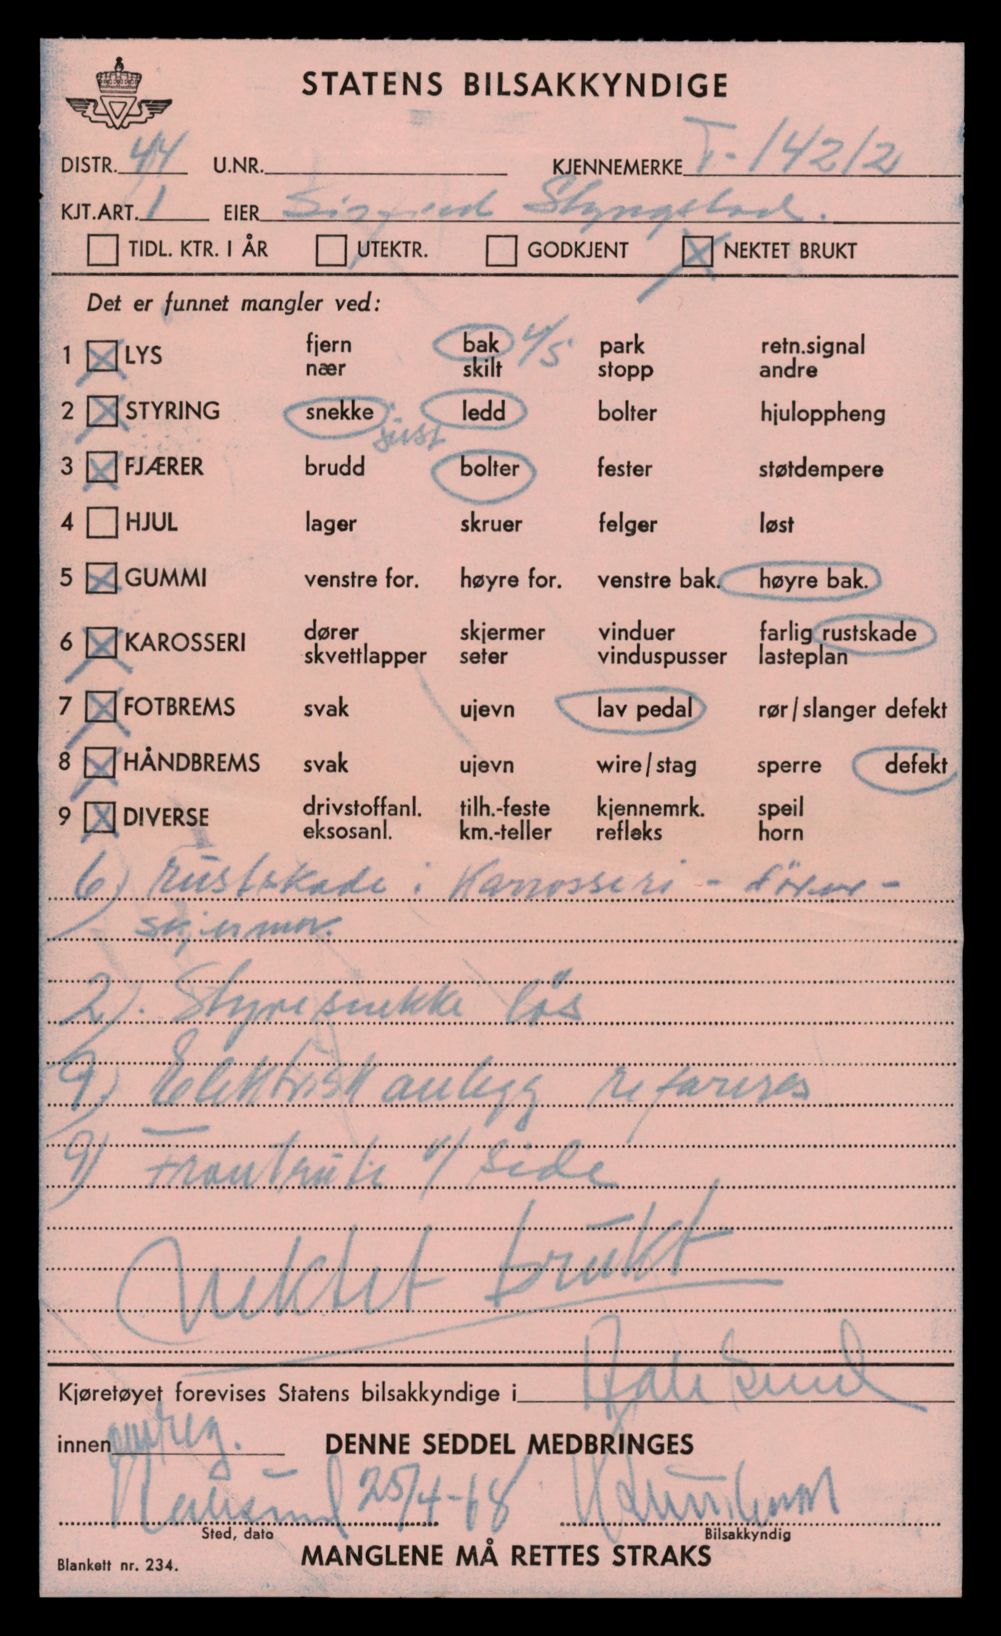 STATENS BILSAKKYNDIGE
DISTR. 44 U.NR. KJENNEMERKE T-14212
KJT.ART. 1 EIER
TIDL. KTR. I ÅR UTEKTR. GODKJENT NEKTET BRUKT
Det er funnet mangler ved:
1 LYS fjern bak v/s park retn.signal
nær skilt stopp andre
2 STYRING snekke ledd bolter hjuloppheng
just
3 FJÆRER brudd bolter fester støtdempere
4 HJUL lager skruer felger løst
5 GUMMI venstre for. høyre for. venstre bak. høyre bak.
6 KAROSSERI dører skjermer vinduer farlig rustskade
skvettlapper seter vinduspusser lasteplan
7 FOTBREMS svak ujevn lav pedal rør/slanger defekt
8 HÅNDBREMS svak ujevn wire/stag sperre defekt
9 DIVERSE drivstoffanl. tilh.-feste kjennemrk. speil
eksosanl. km.-teller refleks horn
6) rustskade i Karrosseri - dører -
skjermer.
2). Styresnekke løs
9) Elektrisk anlegg repareres
9) Frontrute v/ side
nektet brukt
Kjøretøyet forevises Statens bilsakkyndige i
innen omreg. DENNE SEDDEL MEDBRINGES
25/4-68
Sted, dato Bilsakkyndig
Blankett nr. 234. MANGLENE MÅ RETTES STRAKS